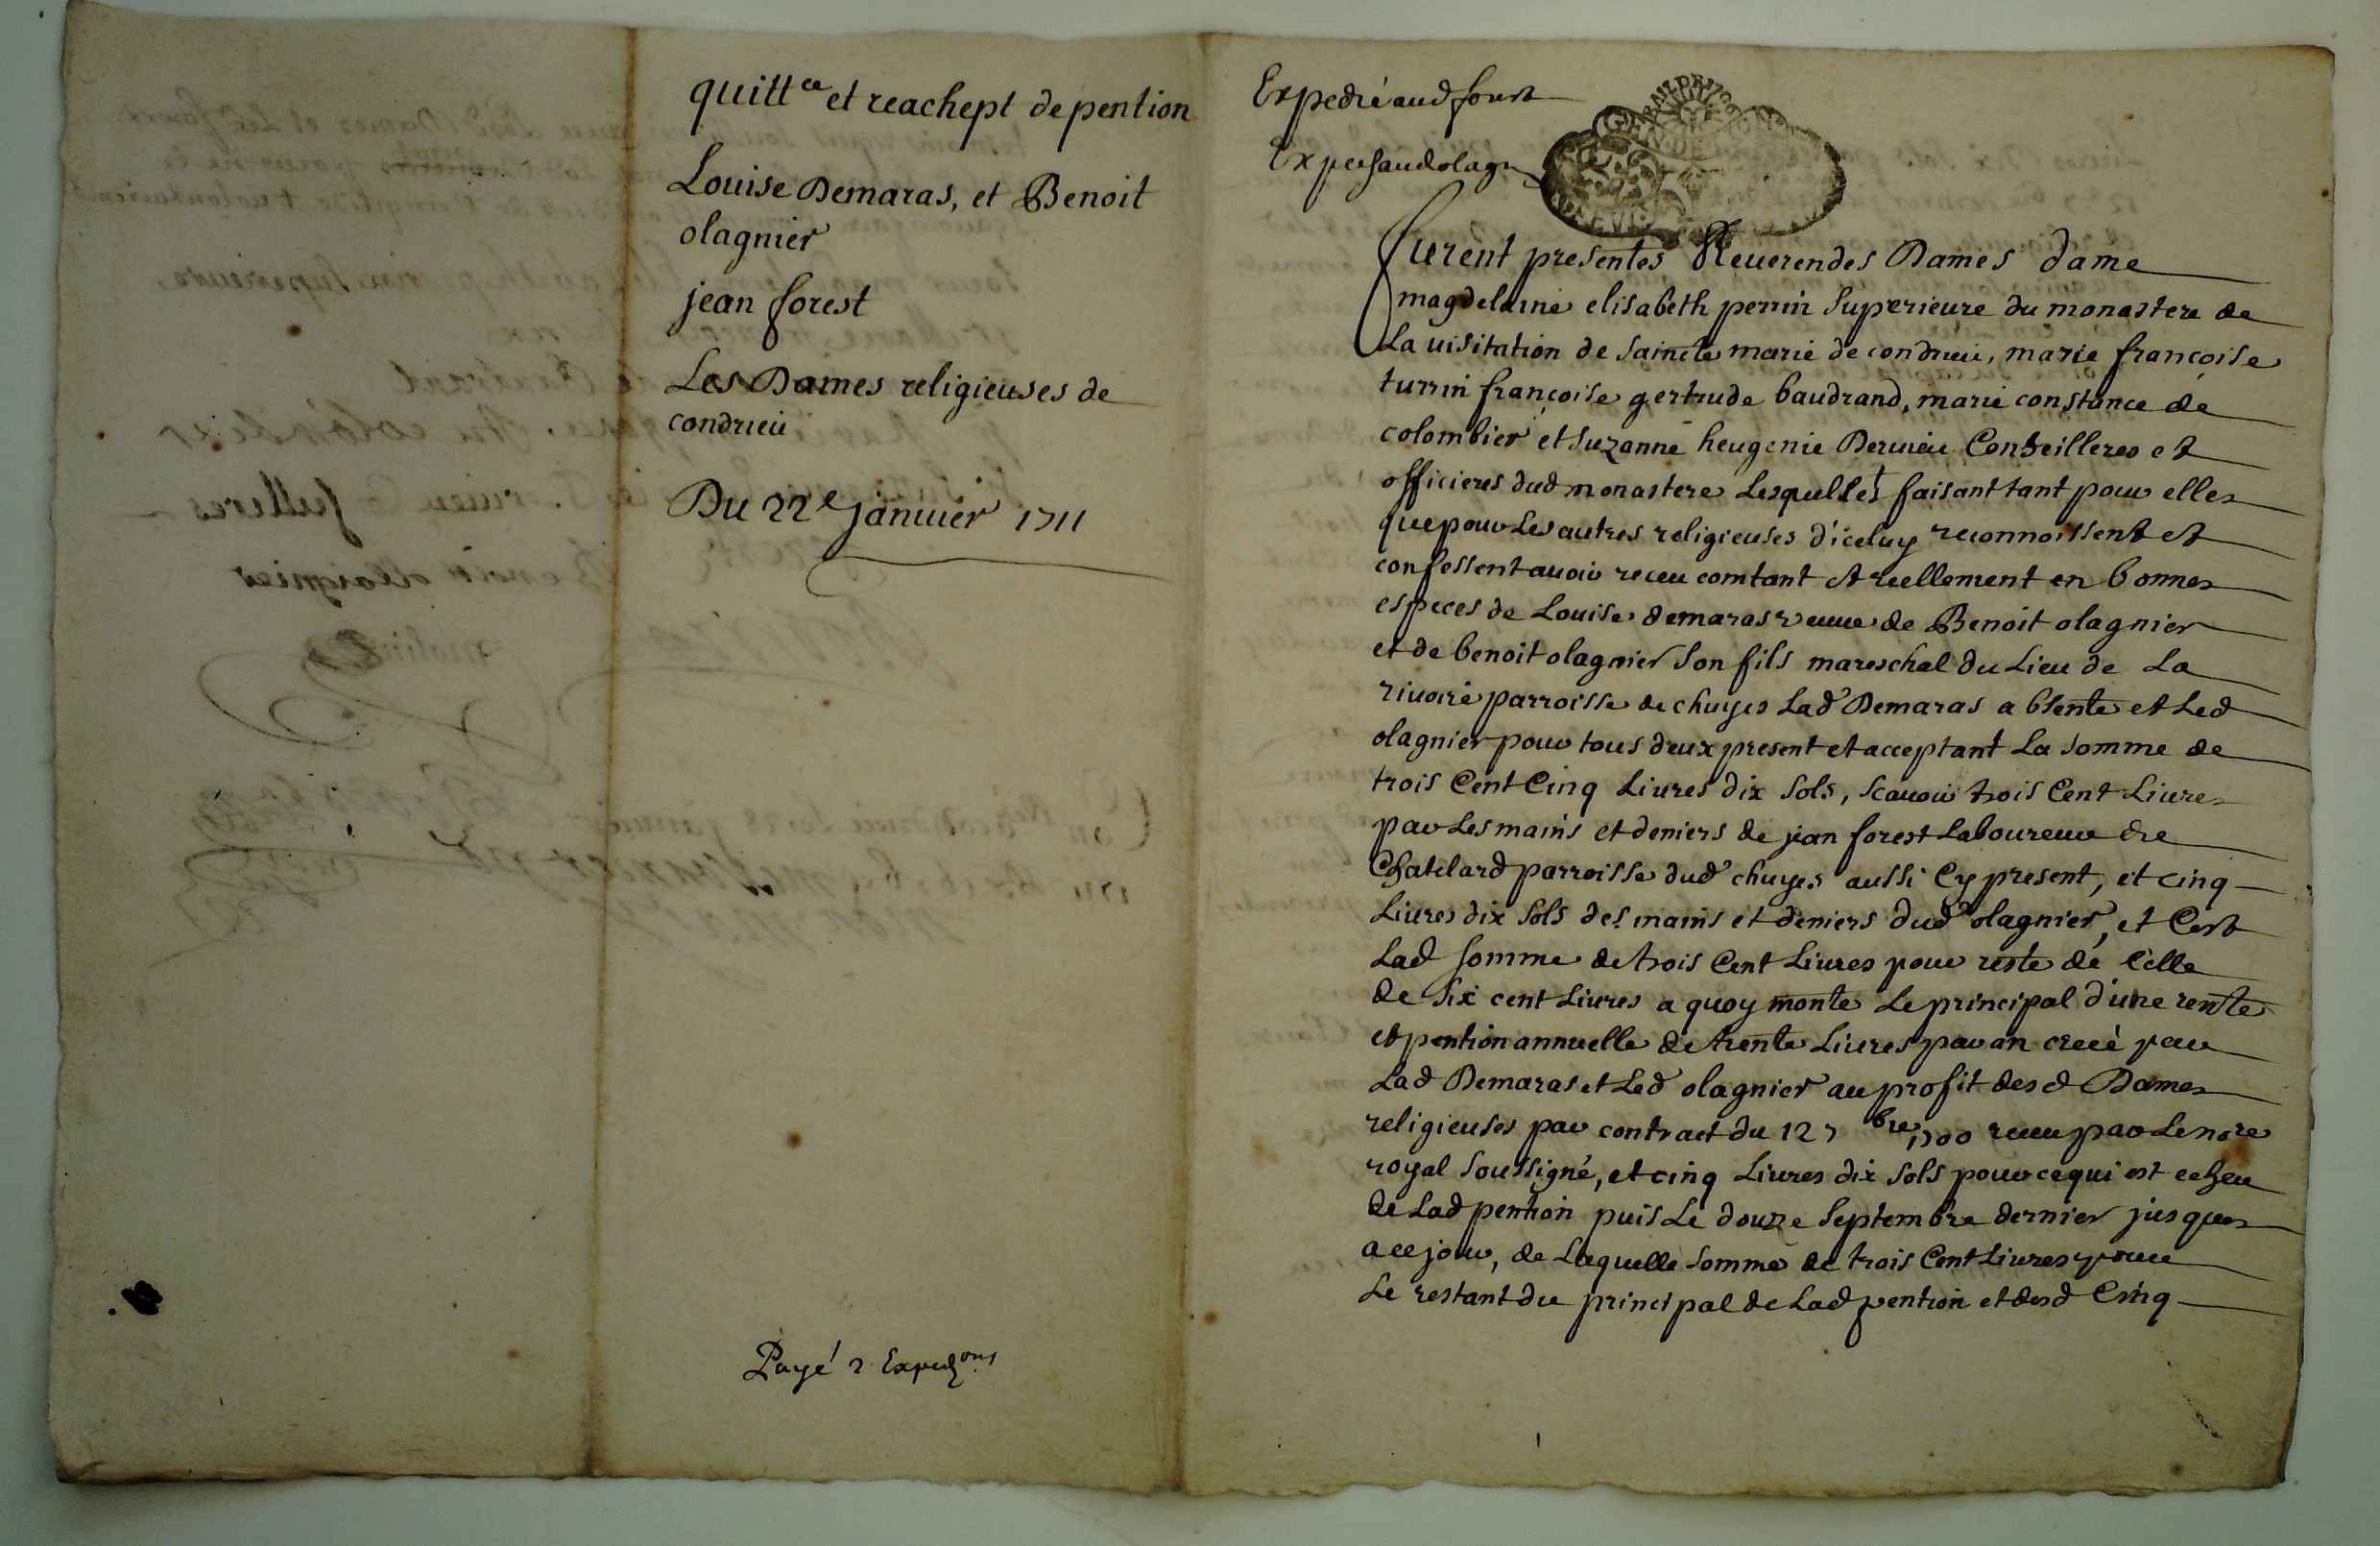 quittce et reachept de pention
Louise Demaras, et Benoit
olagnier
jean forest
Les Dames religieuses de
condrieu
Du 22e januier 1711
Payé 2 Expedons
Expedié aud forest
Expedié aud olagn
furent presentes Reuerendes Dames dame
magdelaine elisabeth perrin superieure du monastere de
La uisitation de saincte marie de condrieu, marie françoise
turrin françoise gertrude baudrand, marie constance de
colombier et suzanne heugenie Deruieu Conseilleres et
officieres dud monastere Lesquelles faisant tant pour elles
que pour Les autres religieuses d'iceluy reconnoissent et
confessent auoir receu comtant et reellement en bonnes
especes de Louise demaras veuue de Benoit olagnier
et de benoit olagnier son fils mareschal du Lieu de La
riuoire parroisse de chuyes Lad Demaras absente et Led
olagnier pour tous deux present et acceptant La somme de
trois Cent Cinq Liures dix sols, scauoir trois Cent Liures
par Les mains et deniers de jean forest Laboureur de
Chatelard parroisse dud chuyes aussi Cy present, et cinq
Liures dix sols des mains et deniers dud olagnier, et C'est
Lad somme de trois Cent Liures pour reste de Celle
de six cent Liures a quoy monte Le principal d'une rente
et pention annuelle de trente Liures par an creeé par
Lad Demaras et Led olagnier au profit desd Dames
religieuses par contract du 12 7bre 1700 receu par Le nore
royal soussigné, et cinq Liures dix sols pour ce qui est echeu
de Lad pention puis Le douze septembre dernier jusques
a ce jour, de Laquelle somme de trois Cent Liures pour
Le restant du principal de Lad pention et desd Cinq